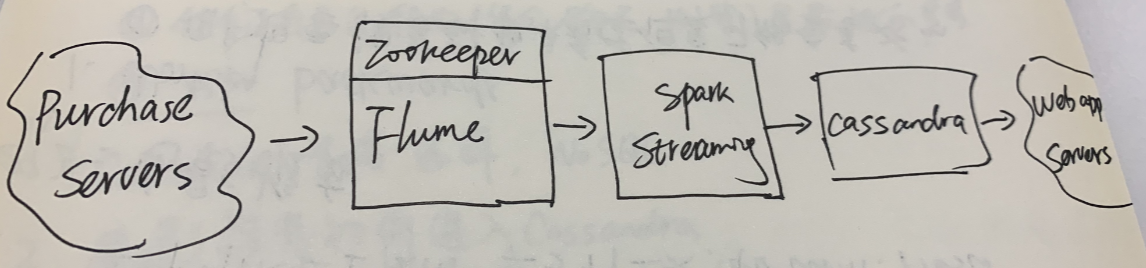 Purchase
Servers
Zookeeper
Flume
Spark
Streaming
Cassandra
Web app
Servers